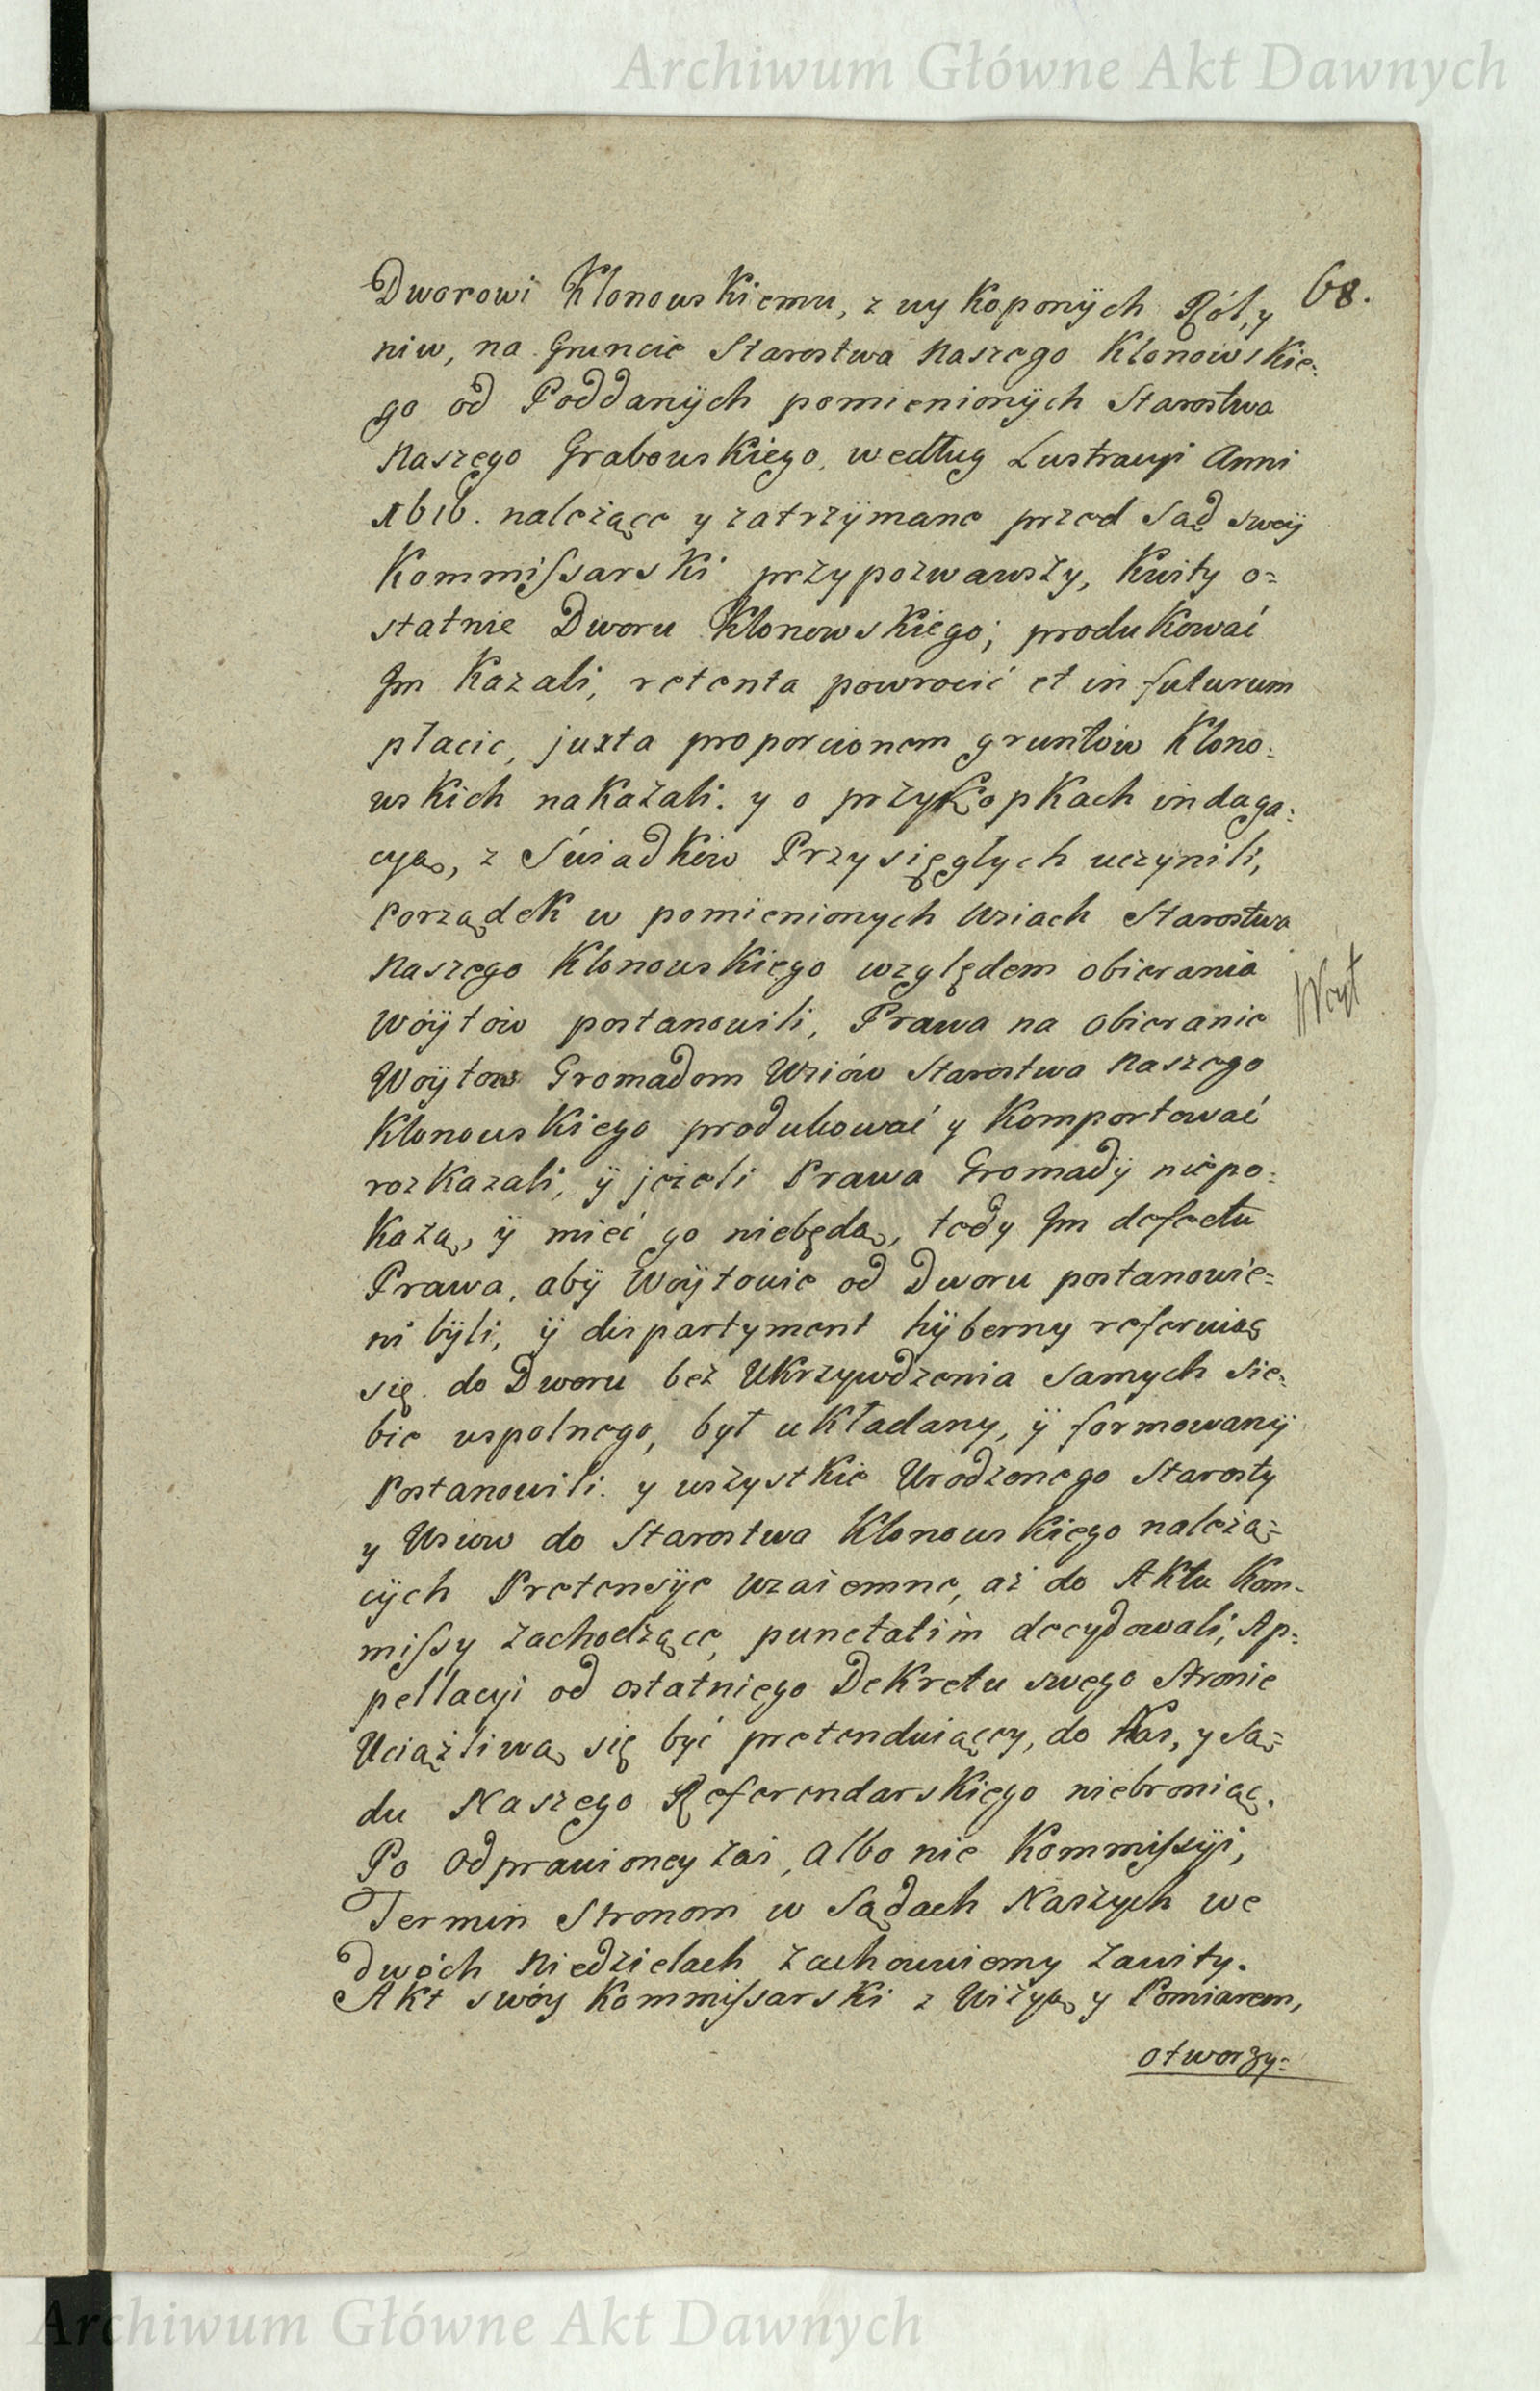 Archiwum Główne Akt Dawnych
68.
Dworowi Klonowskiemu, z wykoponÿch Ról, y
niw, na Gruncie Starostwa Naszego Klonowskie=
go od PoddanÿCh pomienionÿch Starostwa
Naszego Grabowskiego, według Lustracyi Anni
1616. należące y zatrzÿmane przed Sąd swóÿ
Kommiſsarski przypozwawszy, Kwity o=
statnie Dworu Klonowskiego; produkować
Im Kazali, retenta powrocić et in futurum
płacic, juxta proporcionem gruntów Klono=
wskich nakazali. y o przykopkach indaga=
cyą, z Świadków Przysięgłych uczynili,
Porządek w pomienionych Wsiach Starostwa
Naszego Klonowskiego względem obierania
Wóÿtów postanowili, Prawa na obieranie
Woÿtow Gromadom Wsiów Starostwa Naszego
Klonowskiego produkować y Komportować
rozkazali, ÿ jeżeli Prawa Gromadÿ niepo=
każą, ÿ mieć go niebędą, tedy Im defectu
Prawa, abÿ Woÿtowie od Dworu postanowie=
ni bÿli, ÿ dispartyment hÿberny referuiąc
się do Dworu bez Ukrzywdzenia samych sie=
bie wspolnego, był układany, ÿ formowanÿ
Postanowili. y wszystkie Urodzonego Starosty
y Wsiow do Starostwa Klonowskiego należą=
cÿch Pretensÿe wzaiemne, aż do Aktu Kom=
miſsy zachodzące, punctatim decydowali, Ap=
pellacyi od ostatniego Dekretu swego Stronie
Uciążliwą się być pretenduiącey, do Nas, y Są=
du Naszego Referendarskiego niebroniąc.
Po odprawioney zaś, albo nie Kommiſsÿi,
Termin Stronom w Sądach Naszych we
dwóch Niedzielach zachowuiemy zawity.
Akt swóy Kommiſsarski z Wizyą y Pomiarem,
otworzy=
Woyt
Archiwum Główne Akt Dawnych